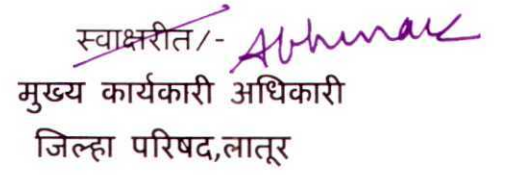 स्वाक्षरीत/- Abhinav
मुख्य कार्यकारी अधिकारी
जिल्हा परिषद,लातूर